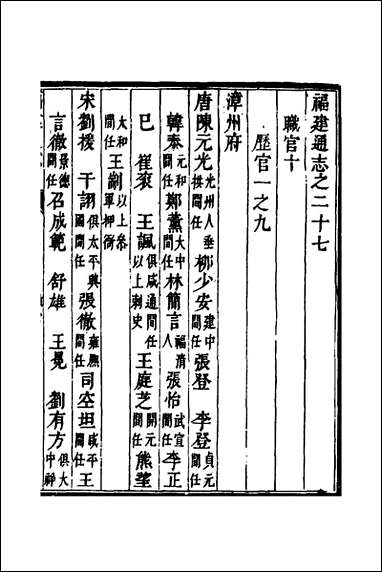 福建通志之二十七
職官十
歷官一之九
漳州府
唐陳元光光州人垂拱間任柳少安建中間任張登 李登貞元間任
韓泰元和間任鄭薰大中間任林簡言福清人張怡武宣間任李正
巳 崔袞 王諷俱咸通間任以上刺史王庭芝開元間任熊瑩
太和間任王蒯以上參軍押衙
宋劉援 干詡俱太平興國間任張徹雍熙間任司空坦咸平間任王
言徹景德間任召成範 舒雄 王冕 劉有方俱大中祥